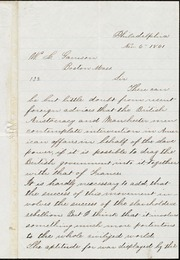 Philadelphia
Nov 6th 1861
Wm L. Garrison
Boston Mass
Sir
There can
be but little doubt from recent
foreign advices that the British
Aristocracy and Manchester men
contemplate intervention in Amer
ican affairs on behalf of the slave
power, if it is possible to drag the
British government into it together
with that of France.
It is hardly necessary to add that
the success of this movement in
volves the success of the slaveholders
rebellion. But I think that it involves
something much more portentous
to the whole civilized world.
The aptitude for war displayed by the